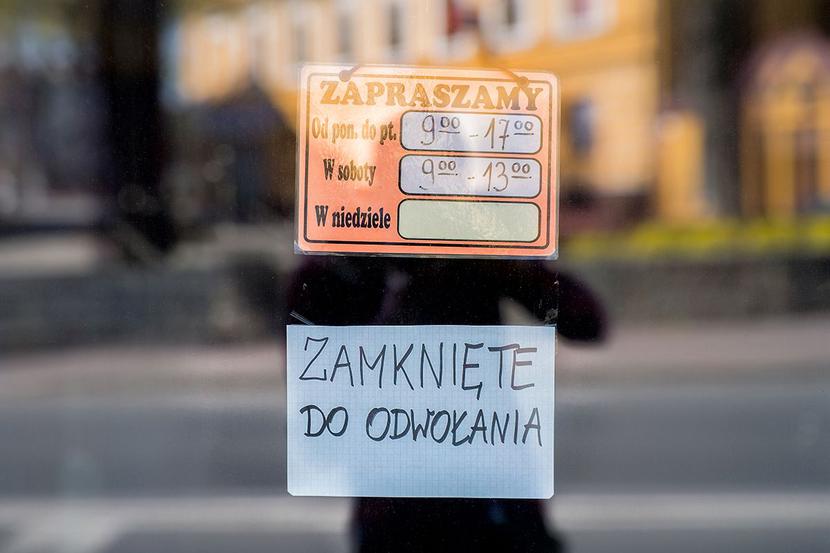 ZAPRASZAMY
Od pon. do pt. 9⁰⁰ - 17⁰⁰
W soboty 9⁰⁰ - 13⁰⁰
W niedziele
ZAMKNIĘTE
DO ODWOŁANIA